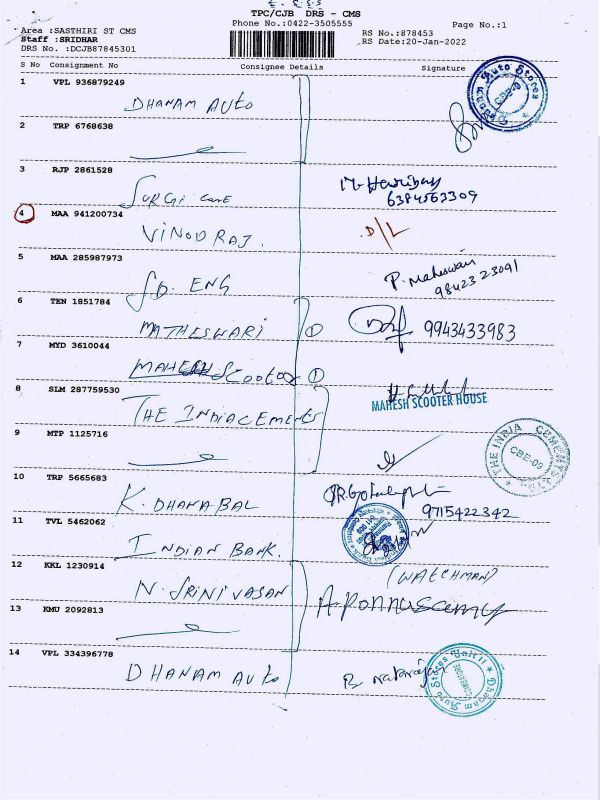 TPC/CJB DRS - CMS
Phone No.:0422-3505555
Page No.:1
Area :SASTHIRI ST CMS
Staff :SRIDHAR
DRS No. :DCJB87845301
RS No.:878453
RS Date:20-Jan-2022
S No Consignment No Consignee Details Signature
1 VPL 936879249
DHANAM AUTO
2 TRP 6768638
3 RJP 2861528
SURGI care
6384563309
4 MAA 941200734
VINOD RAJ.
D/L
5 MAA 285987973
SD. ENG
P. Maheswari
9842323091
6 TEN 1851784
MATHESWARI ①
9943433983
7 MYD 3610044
MAHESH SCooter ①
8 SLM 287759530
MAHESH SCOOTER HOUSE
THE INDIACEMENTS
9 MTP 1125716
THE INDIA CEMENTS LTD
CBE-09
10 TRP 5665683
K. DHANABAL
9715422342
11 TVL 5462062
INDIAN BANK.
12 KKL 1230914
(WATCHMAN)
N. SRINIVASAN
A. Ponnuscamy
13 KMU 2092813
14 VPL 334396778
DHANAM AUTO
R. natarajan
Dhanam Auto Stores Unit II
COIMBATORE